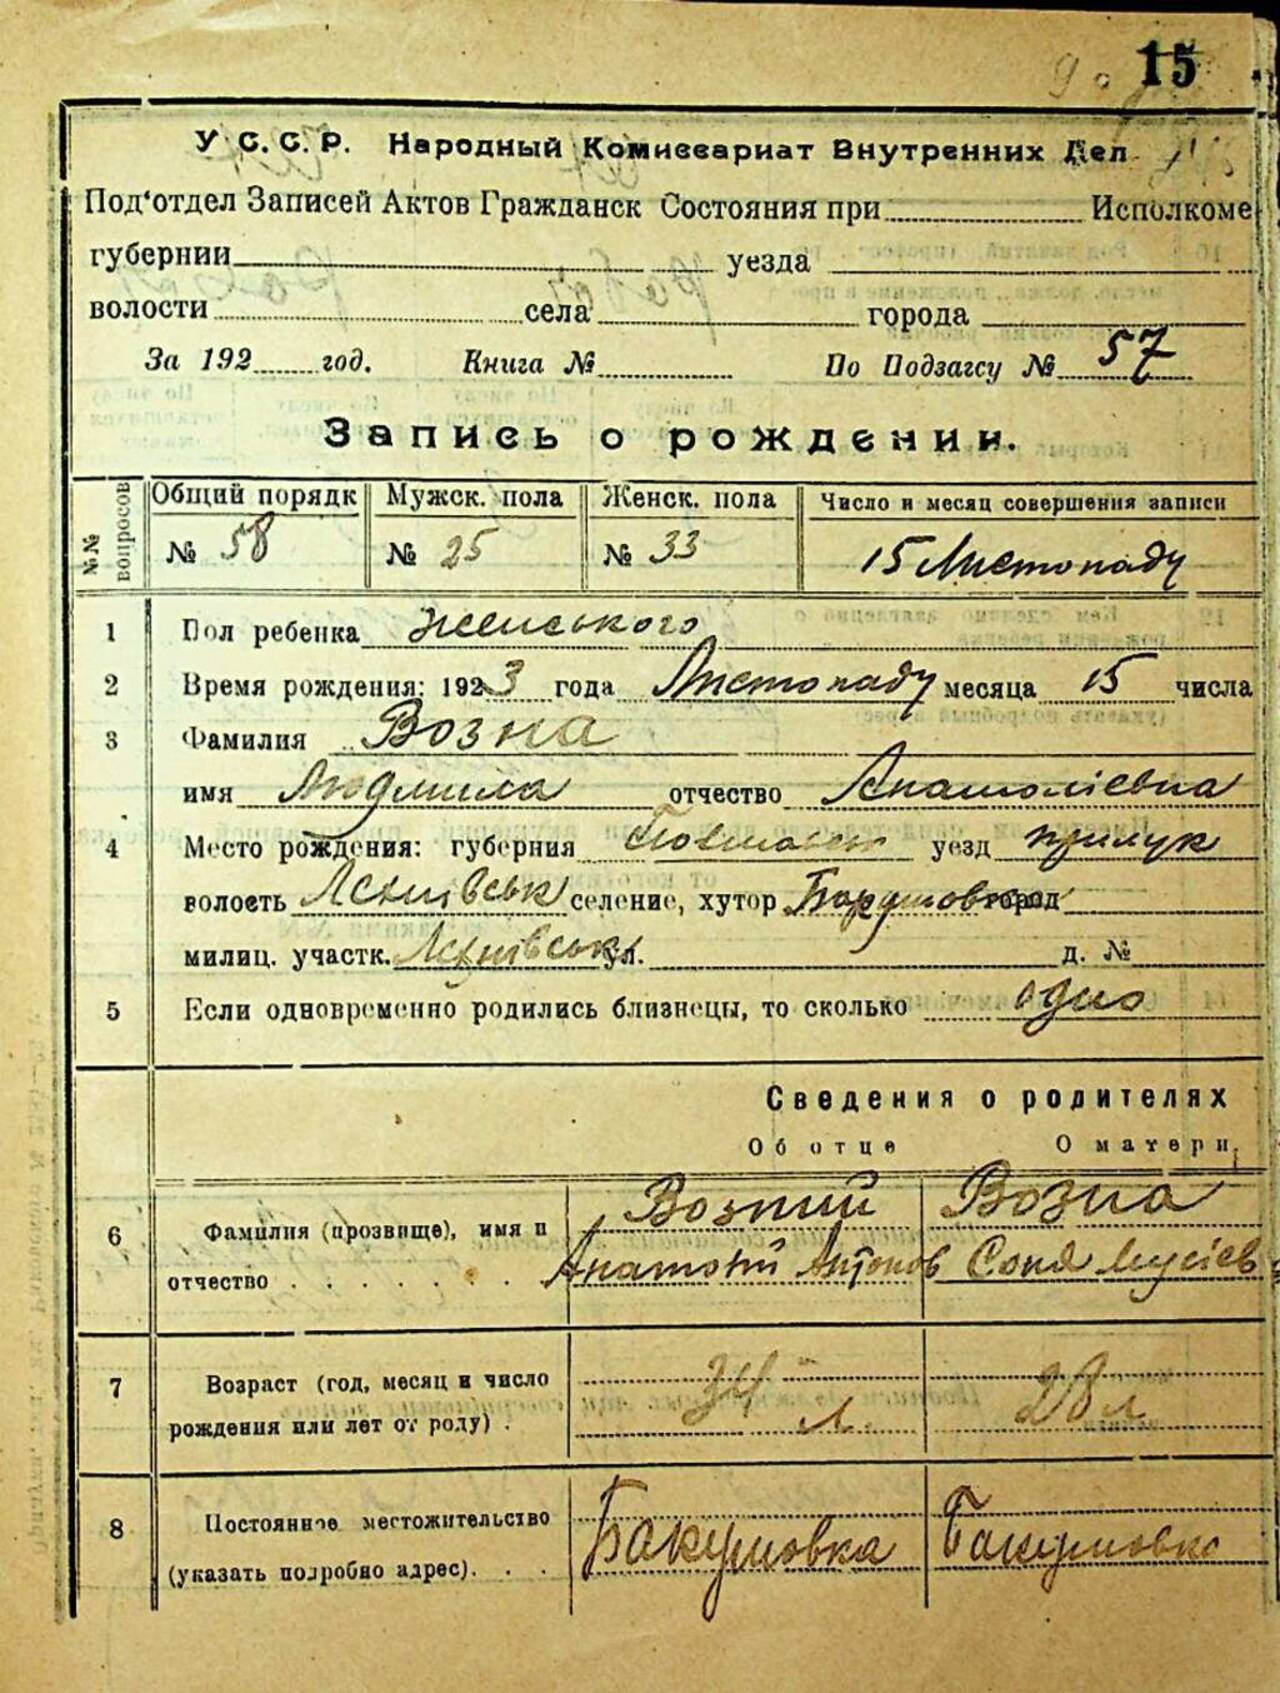 15
У С. С. Р. Народный Комиссариат Внутренних Дел
Под'отдел Записей Актов Гражданск Состояния при Исполкоме
губернии уезда
волости села города
За 192 год. Книга № По Подзагсу № 57
Запись о рождении.
№№ вопросов Общий порядк Мужск. пола Женск. пола Число и месяц совершения записи
№ 58 № 25 № 33 15 Листопаду
1 Пол ребенка женського
2 Время рождения: 1923 года Листопаду месяца 15 числа
3 Фамилия Возна
имя Людмила отчество Анатолієвна
4 Место рождения: губерния уезд прилук
волость селение, хутор город
милиц. участк. ул. д. №
5 Если одновременно родились близнецы, то сколько одно
Сведения о родителях
Об отце О матери
6 Фамилия (прозвище), имя и Возний Возна
отчество Анатолій Антонов Соня Мусієв
7 Возраст (год, месяц и число 34 28 л
рождения или лет от роду) л.
8 Постоянное местожительство
(указать подробно адрес) Бакумовка Бакумовка